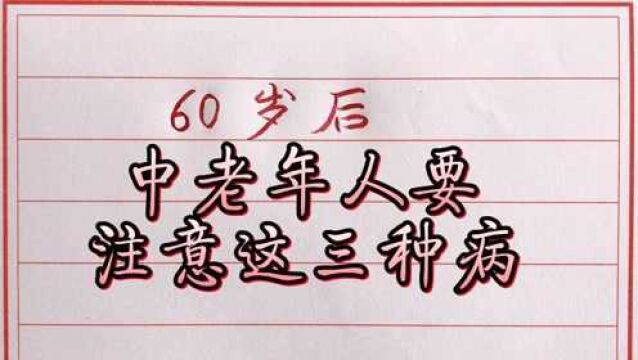 60岁后
中老年人要
注意这三种病